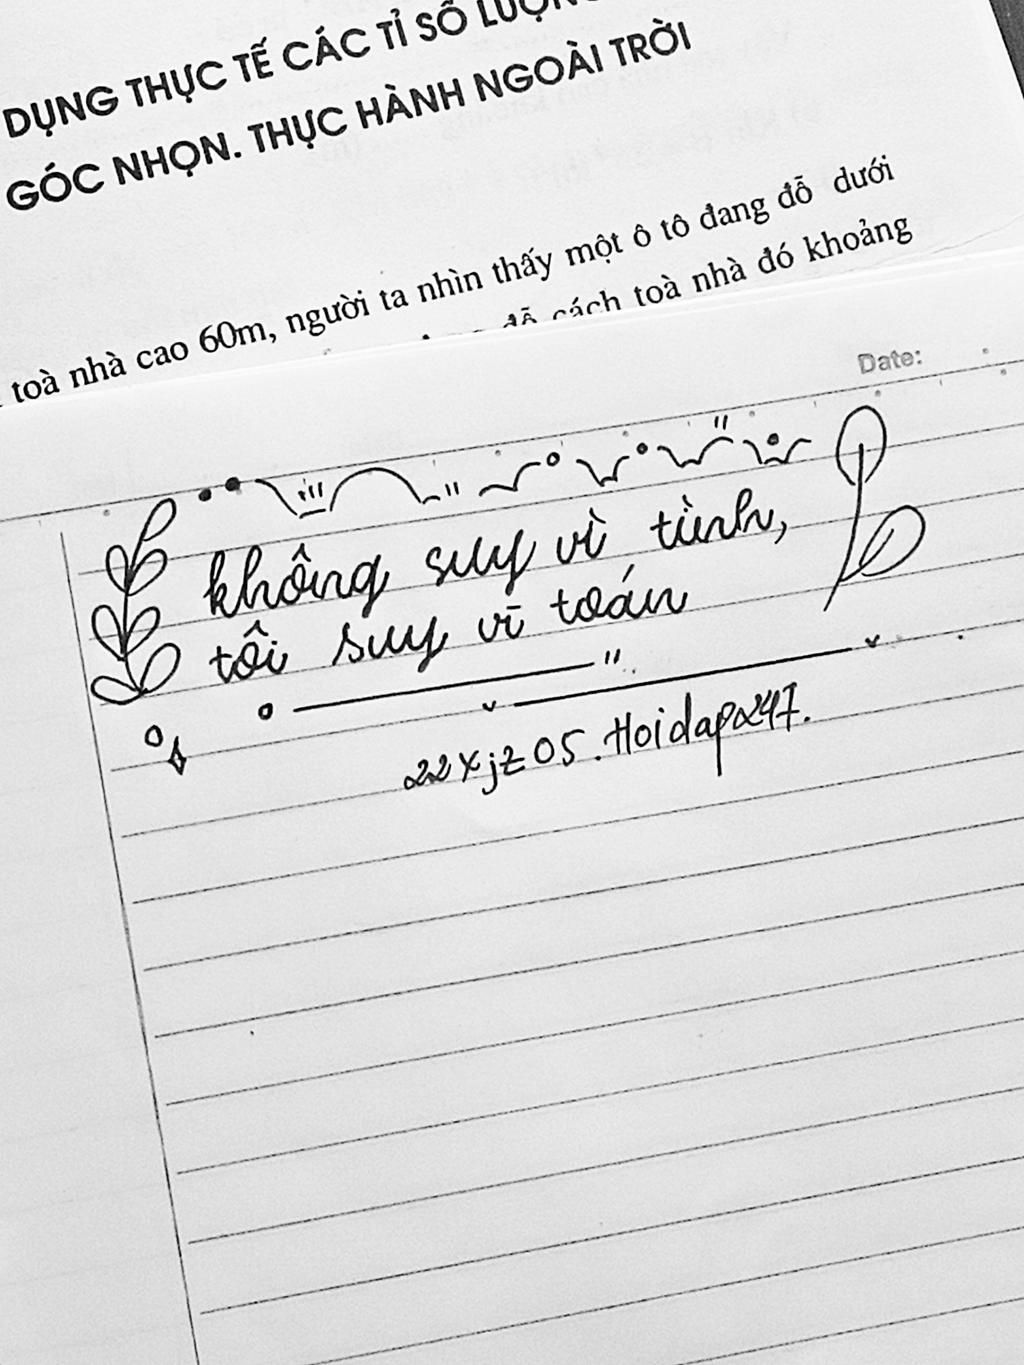 DỤNG THỰC TẾ CÁC TỈ SỐ LƯỢN
GÓC NHỌN. THỰC HÀNH NGOÀI TRỜI
toà nhà cao 60m, người ta nhìn thấy một ô tô đang đỗ dưới
đỗ cách toà nhà đó khoảng
Date:
không suy vì tình,
tôi suy vì toán
22xjz05.Hoidap247.